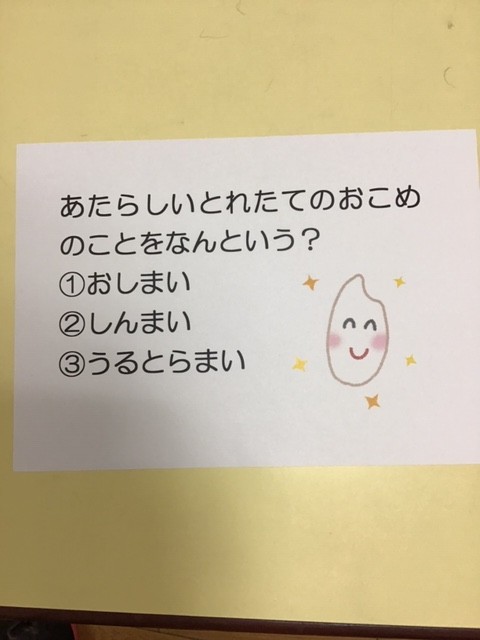 あたらしいとれたてのおこめ
のことをなんという？
①おしまい
②しんまい
③うるとらまい